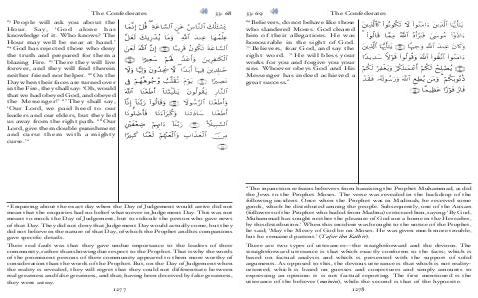 The Confederates
33: 68
⁶³ People will ask you about the
Hour. Say, 'God alone has
knowledge of it. Who knows? The
Hour may well be near at hand.'ᵃ
⁶⁴ God has rejected those who deny
the truth and prepared for them a
blazing Fire. ⁶⁵ There they will live
forever, and they will find therein
neither friend nor helper. ⁶⁶ On the
Day when their faces are turned over
in the Fire, they shall say: 'Oh, would
that we had obeyed God, and obeyed
the Messenger!' ⁶⁷ They shall say,
'Our Lord, we paid heed to our
leaders and our elders, but they led
us away from the right path. ⁶⁸ Our
Lord, give them double punishment
and curse them with a mighty
curse.'
يَسْـَٔلُكَ ٱلنَّاسُ عَنِ ٱلسَّاعَةِ قُلْ إِنَّمَا
عِلْمُهَا عِندَ ٱللَّهِ وَمَا يُدْرِيكَ لَعَلَّ
ٱلسَّاعَةَ تَكُونُ قَرِيبًا ۝ إِنَّ ٱللَّهَ لَعَنَ
ٱلْكَـٰفِرِينَ وَأَعَدَّ لَهُمْ سَعِيرًا ۝
خَـٰلِدِينَ فِيهَآ أَبَدًا لَّا يَجِدُونَ وَلِيًّا وَلَا
نَصِيرًا ۝ يَوْمَ تُقَلَّبُ وُجُوهُهُمْ فِى
ٱلنَّارِ يَقُولُونَ يَـٰلَيْتَنَآ أَطَعْنَا ٱللَّهَ
وَأَطَعْنَا ٱلرَّسُولَا۠ ۝ وَقَالُوا۟ رَبَّنَآ إِنَّآ
أَطَعْنَا سَادَتَنَا وَكُبَرَآءَنَا فَأَضَلُّونَا
ٱلسَّبِيلَا۠ ۝ رَبَّنَآ ءَاتِهِمْ ضِعْفَيْنِ
مِنَ ٱلْعَذَابِ وَٱلْعَنْهُمْ لَعْنًا كَبِيرًا
ᵃ Enquiring about the exact day when the Day of Judgement would arrive did not
mean that the enquiries had no belief what soever in Judgement Day. This was not
meant to mock the Day of Judgement, but to ridicule the person who gave news
of that Day. They did not deny that Judgement Day would actually come, but they
did not believe in the nature of that Day, of which the Prophet and his companions
gave specific details.
Their real fault was that they gave undue importance to the leaders of their
community, rather than showing that respect to the Prophet. That is why the words
of the prominent persons of their community appeared to them more worthy of
consideration than the words of the Prophet. But, on the Day of Judgement when
the reality is revealed, they will regret that they could not differentiate between
real greatness and false greatness, and that, having been deceived by false greatness,
they went astray.
1277
33: 69
The Confederates
⁶⁹ Believers, do not behave like those
who slandered Moses. God cleared
him of their allegations. He was
honourable in the sight of God.ᵃ
⁷⁰ Believers, fear God, and say the
right word.ᵇ ⁷¹ He will bless your
works for you and forgive you your
sins. Whoever obeys God and His
Messenger has indeed achieved a
great success.
يَـٰٓأَيُّهَا ٱلَّذِينَ ءَامَنُوا۟ لَا تَكُونُوا۟ كَٱلَّذِينَ
ءَاذَوْا۟ مُوسَىٰ فَبَرَّأَهُ ٱللَّهُ مِمَّا قَالُوا۟
وَكَانَ عِندَ ٱللَّهِ وَجِيهًا ۝ يَـٰٓأَيُّهَا ٱلَّذِينَ
ءَامَنُوا۟ ٱتَّقُوا۟ ٱللَّهَ وَقُولُوا۟ قَوْلًا سَدِيدًا
۝ يُصْلِحْ لَكُمْ أَعْمَـٰلَكُمْ وَيَغْفِرْ لَكُمْ
ذُنُوبَكُمْ وَمَن يُطِعِ ٱللَّهَ وَرَسُولَهُۥ فَقَدْ
فَازَ فَوْزًا عَظِيمًا ۝
ᵃ The injunction refrains believers from harassing the Prophet Muhammad, as did
the Jews to the Prophet Moses. The verse was revealed in the backdrop of the
following incident. Once when the Prophet was in Madinah, he received some
goods, which he distributed among the people. Subsequently, one of the Ansar
(followers of the Prophet who hailed from Madina) criticised him, saying: 'By God,
Muhammad has sought neither the pleasure of God nor a home in the Hereafter,
by this distribution'. When this incident was brought to the notice of the Prophet,
he said, 'May the Mercy of God be on Moses. He was given much more trouble,
but he remained patient.' (Tafsir ibn Kathir).
There are two types of utterance—the straightforward and the devious. The
straightforward utterance is that which exactly conforms to the facts; which is
based on factual analysis and which is presented with the support of solid
arguments. As opposed to this, the devious utterance is that which is not reality-
oriented, which is based on guesses and conjectures and simply amounts to
expressing an opinion: it is not factual reporting. The first mentioned is the
utterance of the believer (mumin), while the second is that of the hypocrite.
1278